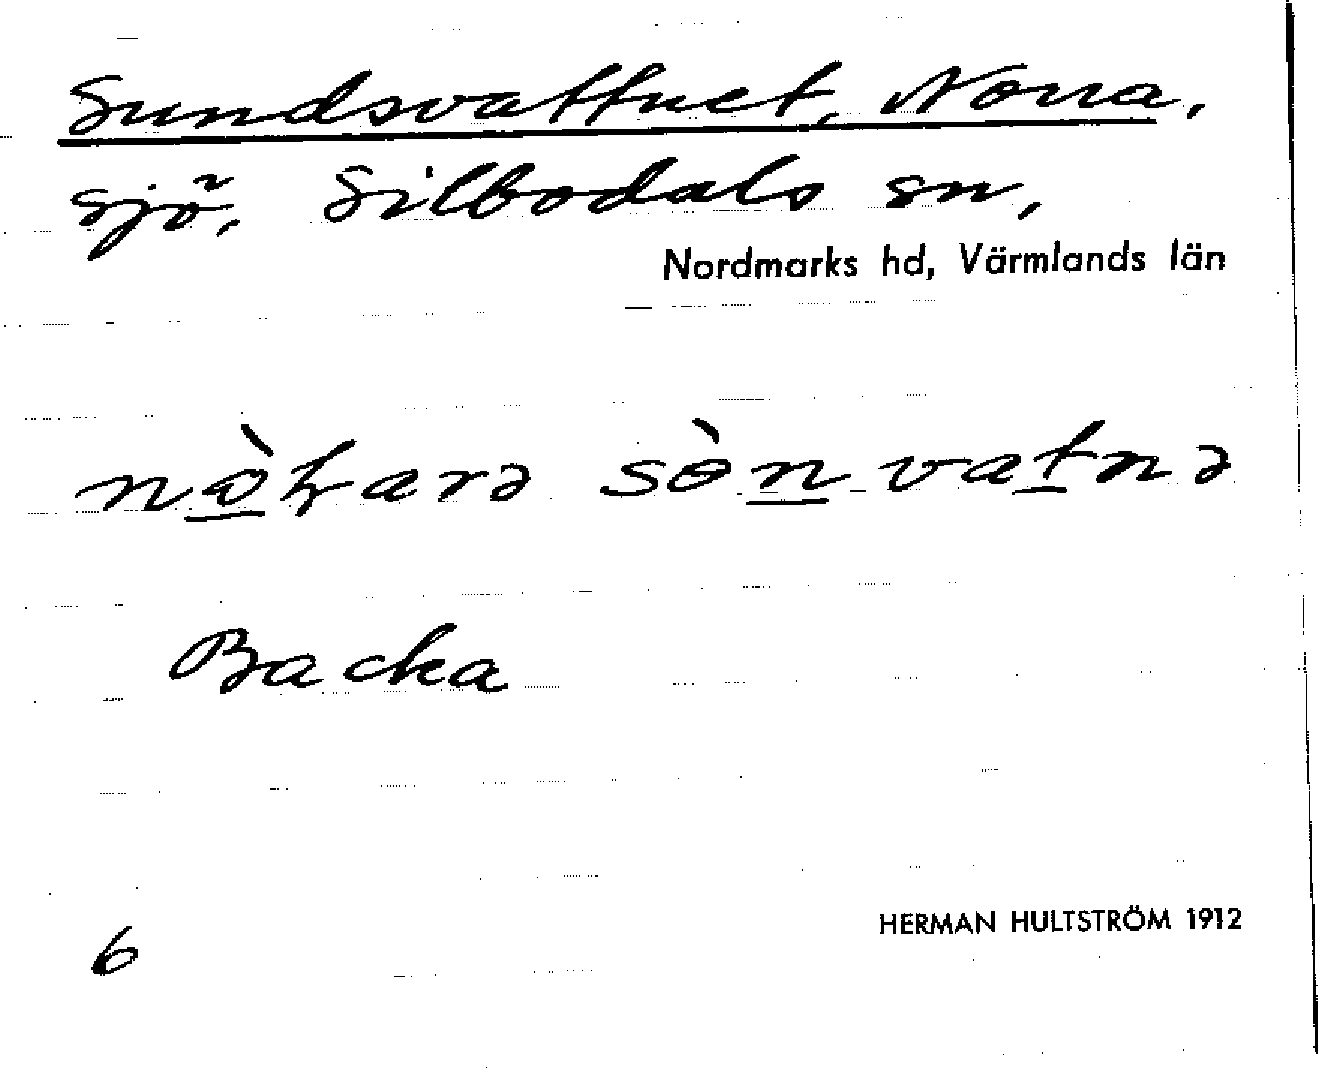 Sundsvattnet, Norra,
sjö, Silbodals sn,
Nordmarks hd, Värmlands län
sɵ̀n vatnə
Backa
6
HERMAN HULTSTRÖM 1912